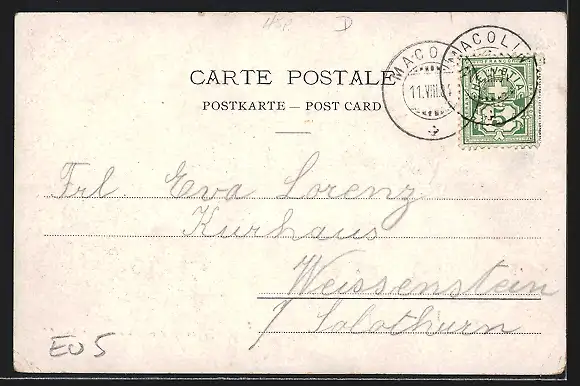 CARTE POSTALE
POSTKARTE — POST CARD
MACOLIN
11.VIII.
HELVETIA
5
Frl. Eva Lorenz
Kurhaus
Weissenstein
/ Solothurn
EU5
D